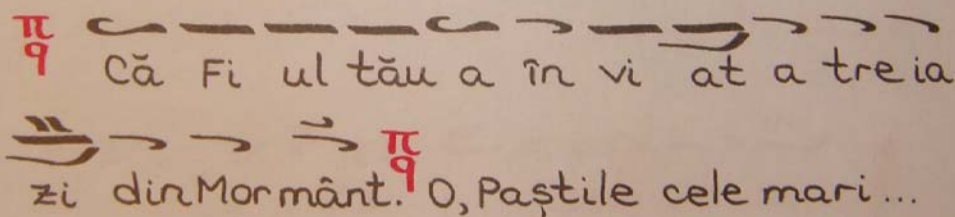 π
q Că Fi ul tău a în vi at a tre ia
zi din Mor mânt. π q O, Paștile cele mari...